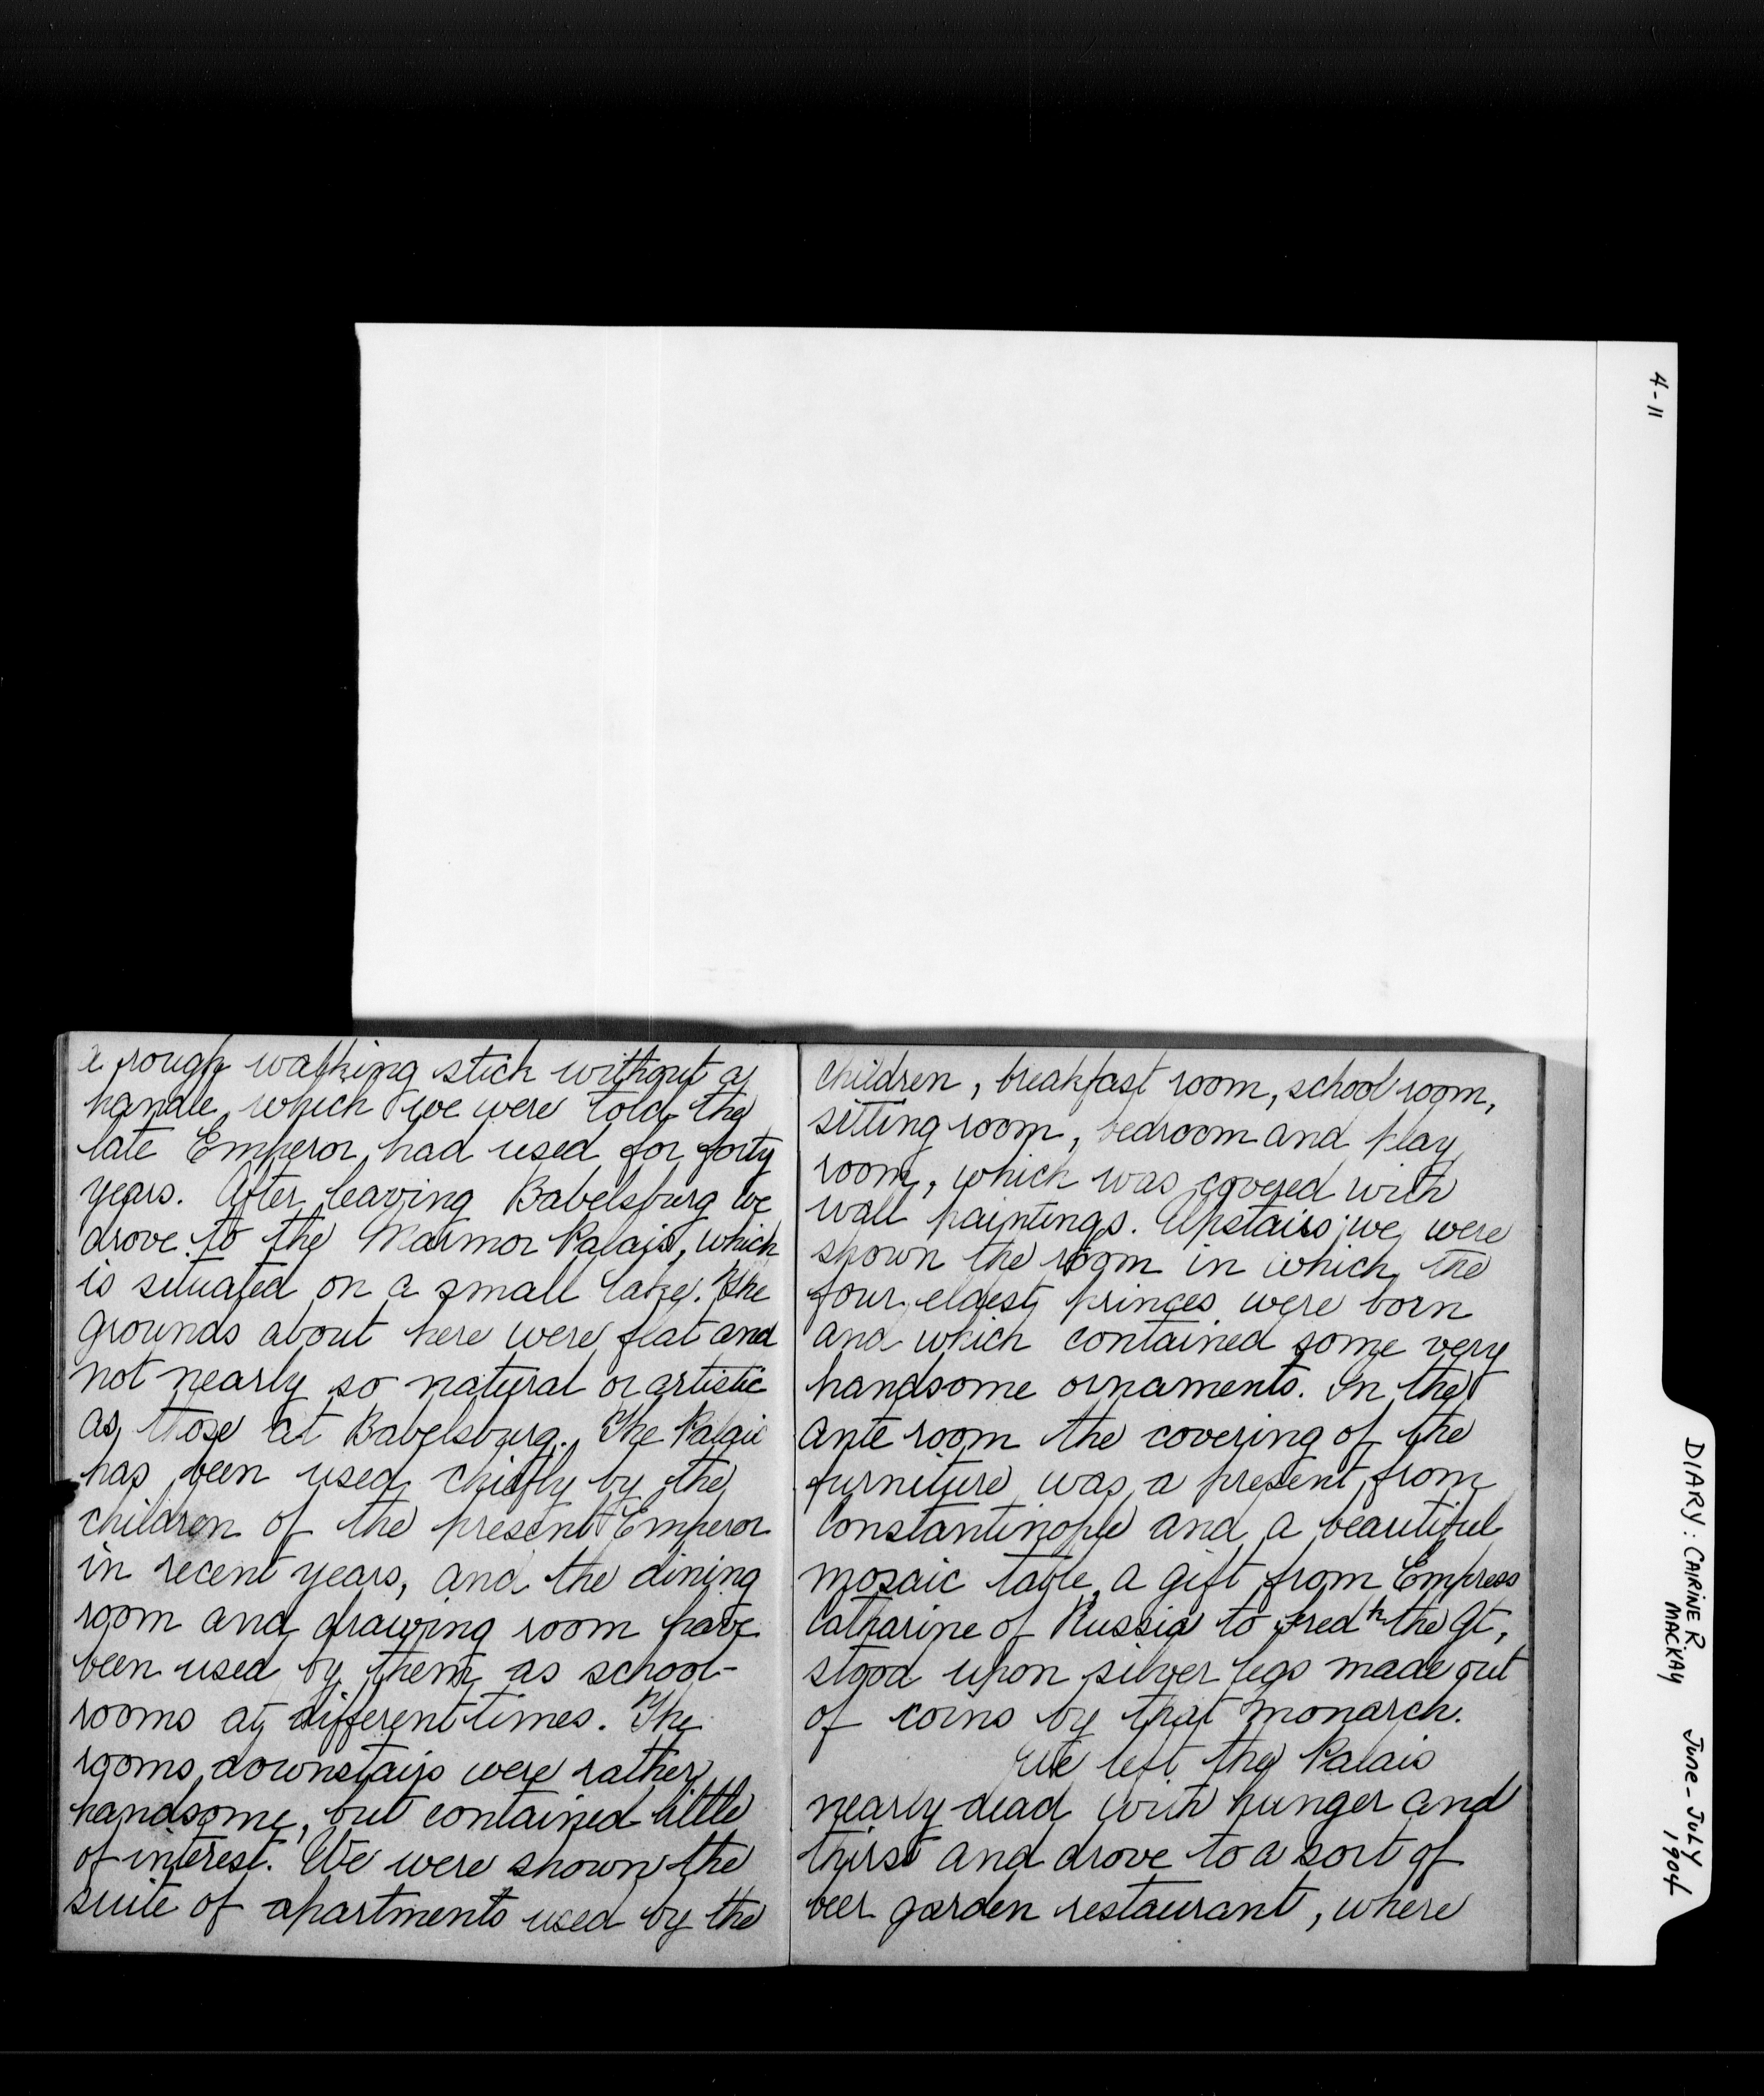 a rough walking stick without a
handle, which we were told the
late Emperor had used for forty
years. After leaving Babelsburg we
drove to the Marmor Palais, which
is situated on a small lake. The
grounds about here were flat and
not nearly so natural or artistic
as those at Babelsburg. The Palais
has been used chiefly by the
children of the present Emperor
in recent years, and the dining
room and drawing room have
been used by them as school-
rooms at different times. The
rooms downstairs were rather
handsome, but contained little
of interest. We were shown the
suite of apartments used by the
children, breakfast room, school room,
sitting room, bedroom and play
room, which was covered with
wall paintings. Upstairs we were
shown the room in which the
four eldest princes were born
and which contained some very
handsome ornaments. In the
ante room the covering of the
furniture was a present from
Constantinople and a beautiful
mosaic table, a gift from Empress
Catharine of Russia to Fredk the Gt,
stood upon silver legs made out
of coins by that monarch.
We left the Palais
nearly dead with hunger and
thirst and drove to a sort of
beer garden restaurant, where
4-11
DIARY: CAIRINE R.
MACKAY
JUNE - JULY
1904